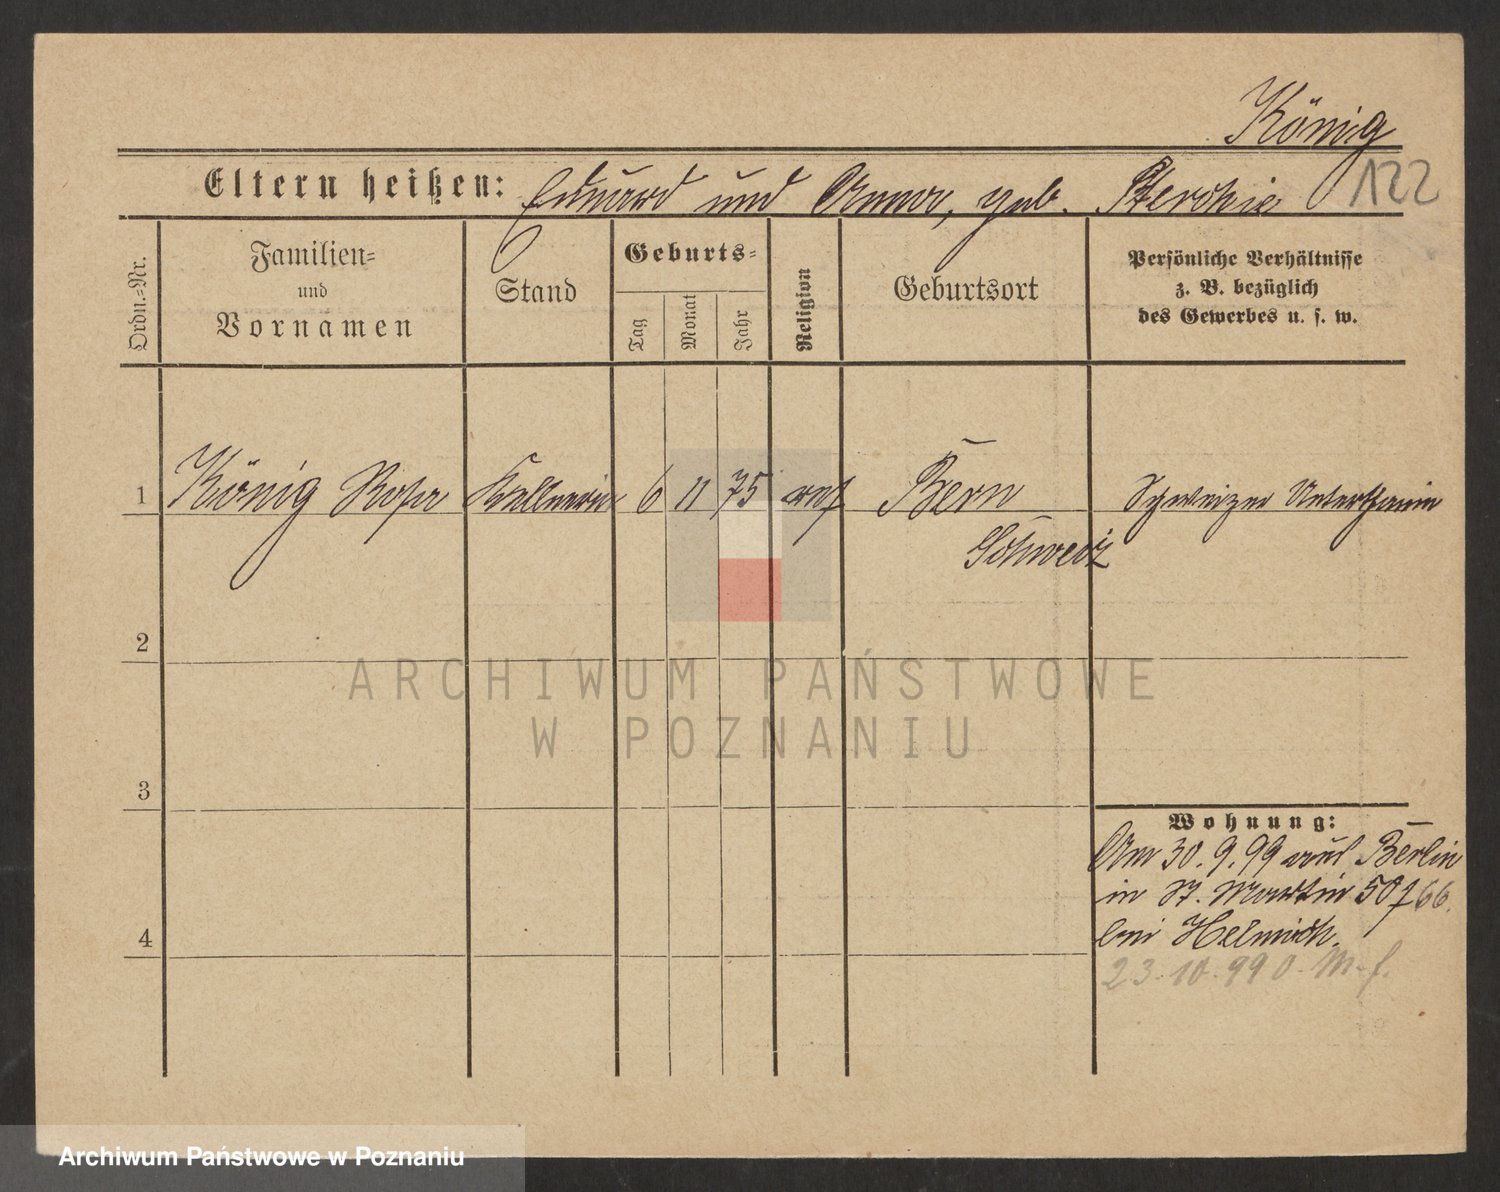 König
122
Eltern heißen: Eduard und Anna, geb. Sterchie
Ordn.=Nr.
Familien=
und
Vornamen
Stand
Geburts=
Tag
Monat
Jahr
Religion
Geburtsort
Persönliche Verhältnisse
z. B. bezüglich
des Gewerbes u. s. w.
1 König Rosa Kellnerin 6 11 75 ref Bern Schweizer Unterthanin
Schweiz
2
ARCHIWUM PAŃSTWOWE
W POZNANIU
3
Wohnung:
Am 30. 9. 99 aus Berlin
in St. Martin 50/66.
4
bei Helmich.
23.10.99 O. M. f.
Archiwum Państwowe w Poznaniu